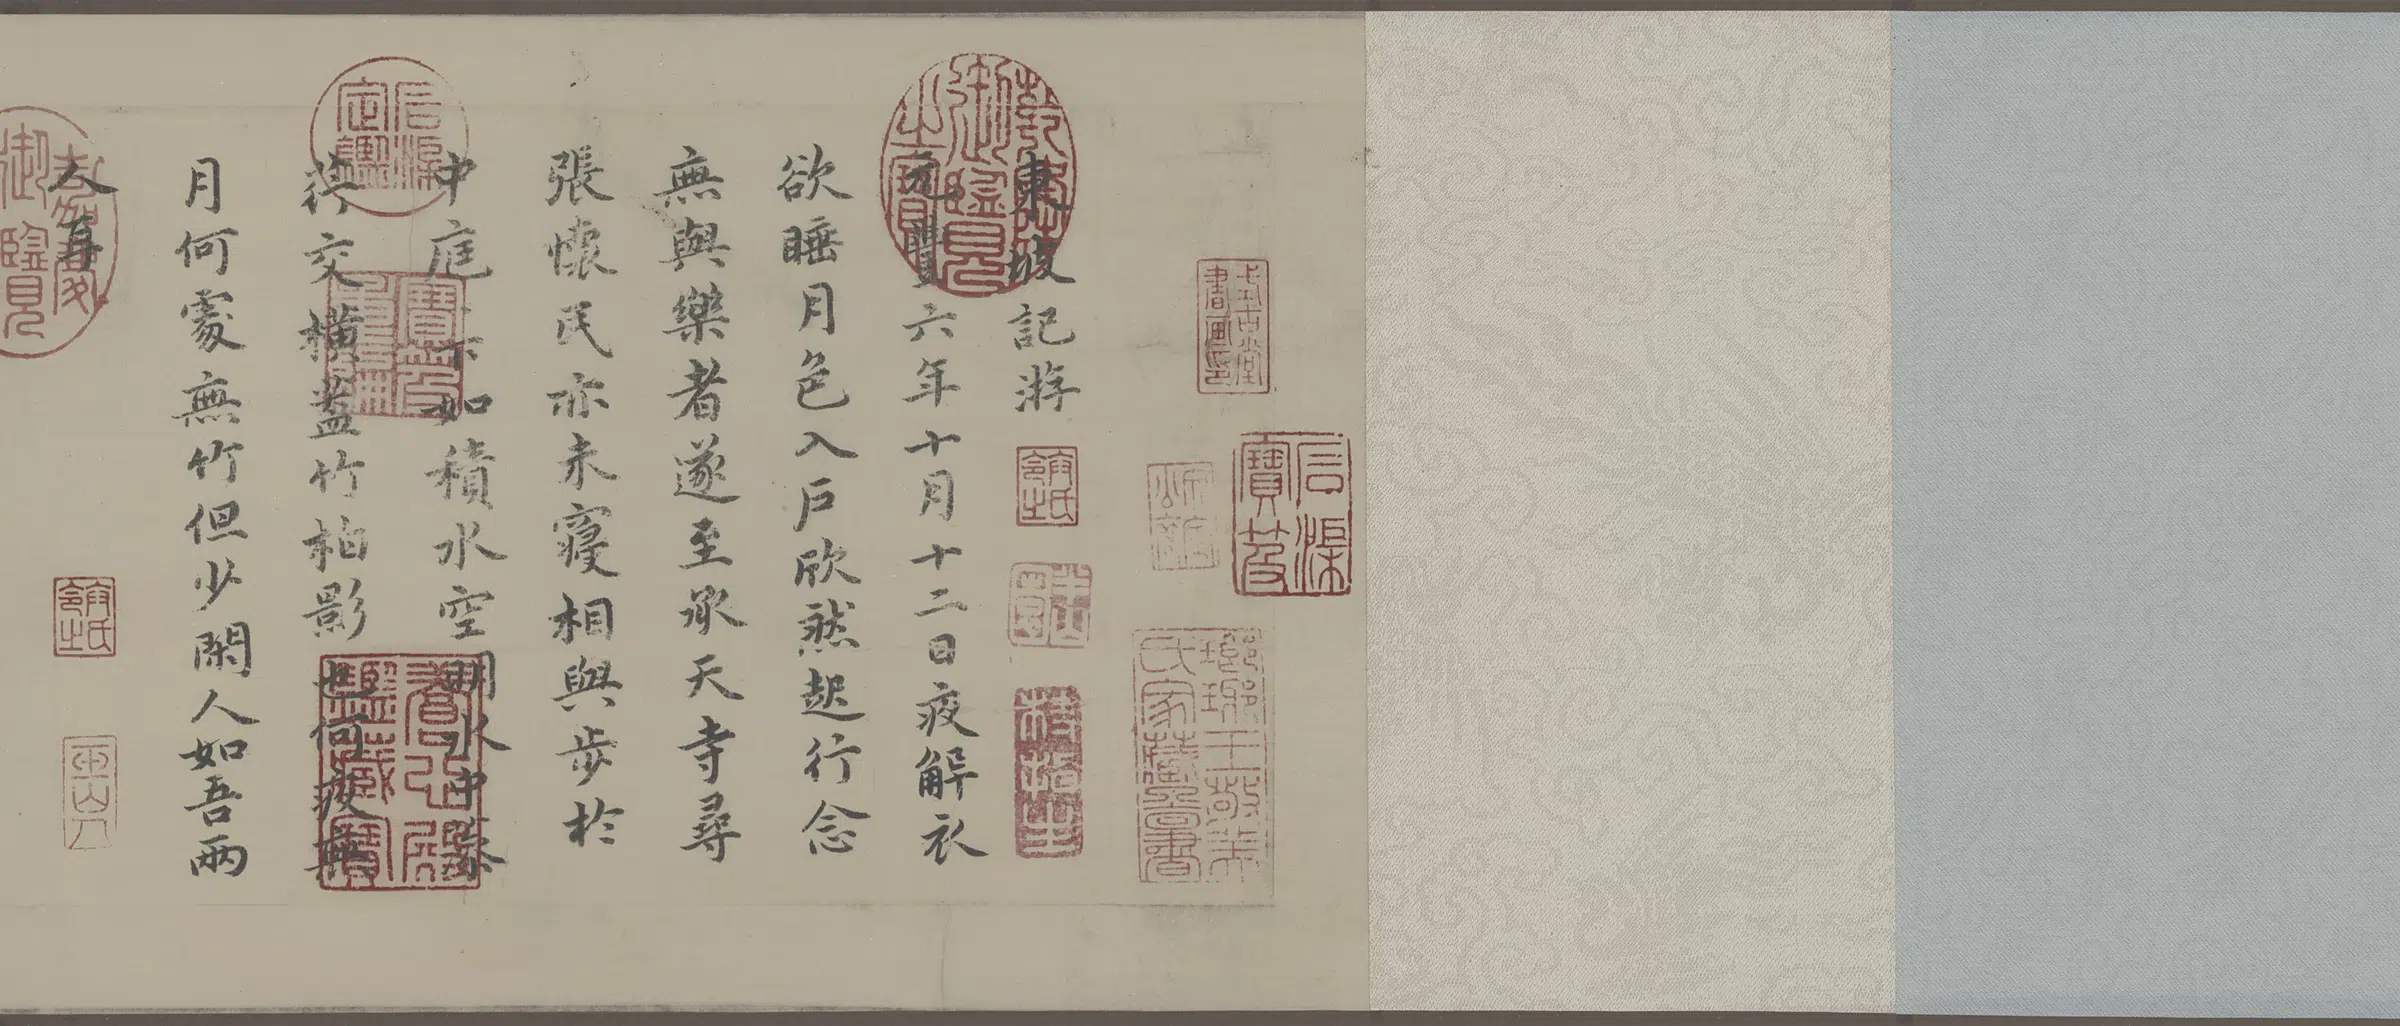 石渠寶笈
式古堂書畫
琅邪王敬美氏家藏圖書
乾隆御覽之寶
東坡記游
元豐六年十月十二日夜解衣
欲睡月色入戶欣然起行念
無與樂者遂至承天寺尋
張懷民亦未寢相與步於
中庭下如積水空明水中藻
荇交橫蓋竹柏影也何夜無
石渠定鑑
寶笈重編
養心殿鑑藏寶
月何處無竹但少閑人如吾兩
人耳
御覽